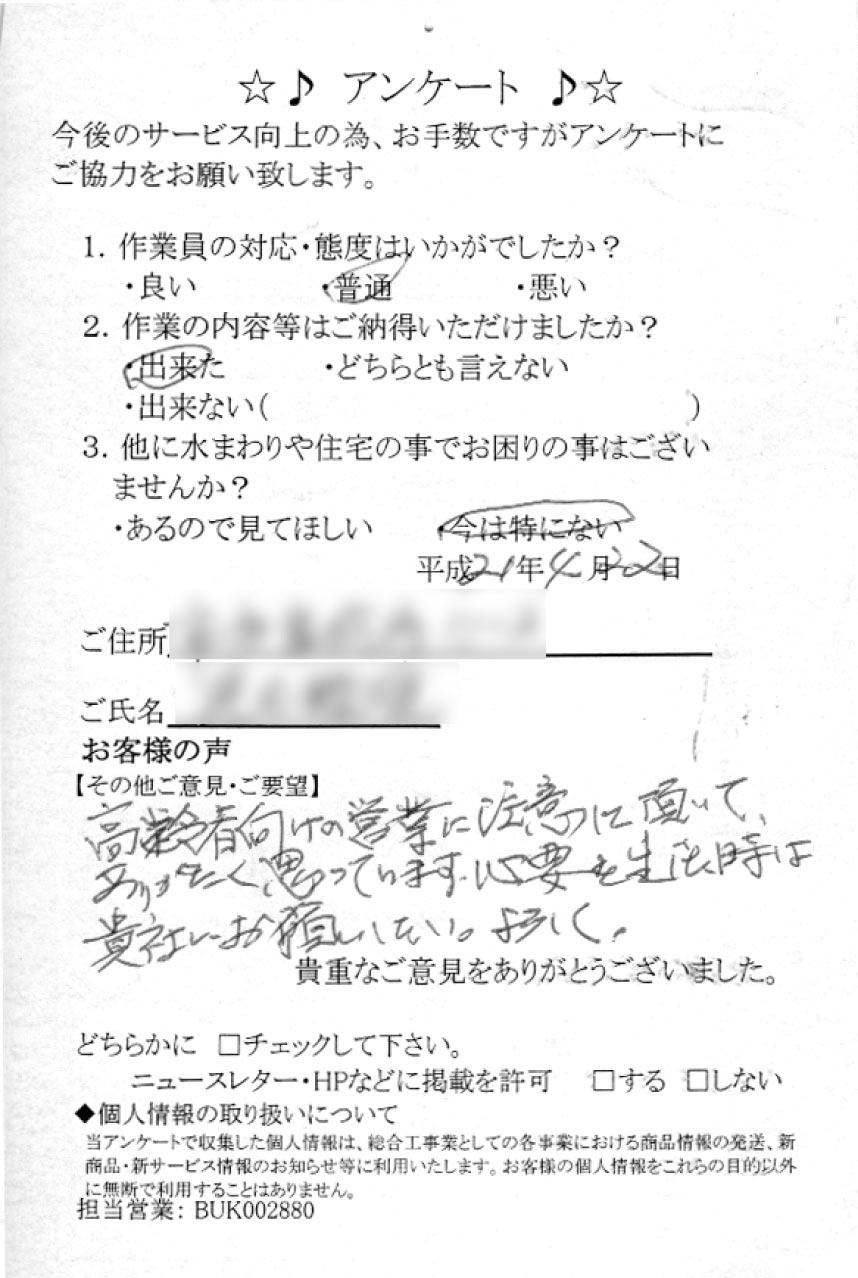 ☆♪ アンケート ♪☆
今後のサービス向上の為、お手数ですがアンケートに
ご協力をお願い致します。
1. 作業員の対応・態度はいかがでしたか？
・良い ・普通 ・悪い
2. 作業の内容等はご納得いただけましたか？
・出来た ・どちらとも言えない
・出来ない( )
3. 他に水まわりや住宅の事でお困りの事はござい
ませんか？
・あるので見てほしい ・今は特にない
平成21年4月22日
ご住所
ご氏名
お客様の声
【その他ご意見・ご要望】
高齢者向けの営業に注意して頂いて、
ありがたく思っています。必要を生じた時は
貴社にお願いしたい。よろしく。
貴重なご意見をありがとうございました。
どちらかに □チェックして下さい。
ニュースレター・HPなどに掲載を許可 □する □しない
◆個人情報の取り扱いについて
当アンケートで収集した個人情報は、総合工事業としての各事業における商品情報の発送、新
商品・新サービス情報のお知らせ等に利用いたします。お客様の個人情報をこれらの目的以外
に無断で利用することはありません。
担当営業: BUK002880